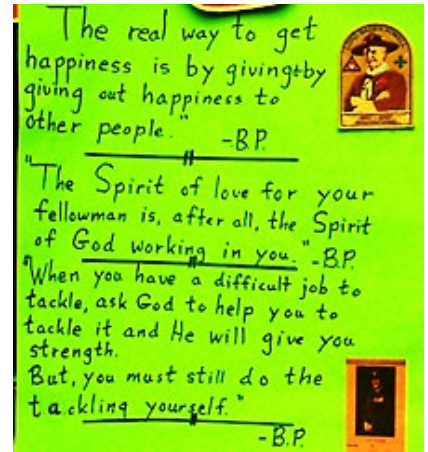 The real way to get
happiness is by giving+by
giving out happiness to
other people."
-B.P.
"The Spirit of love for your
fellowman is, after all, the Spirit
of God working in you."-B.P.
"When you have a difficult job to
tackle, ask God to help you to
tackle it and He will give you
strength.
But, you must still do the
tackling yourself."
-B.P.